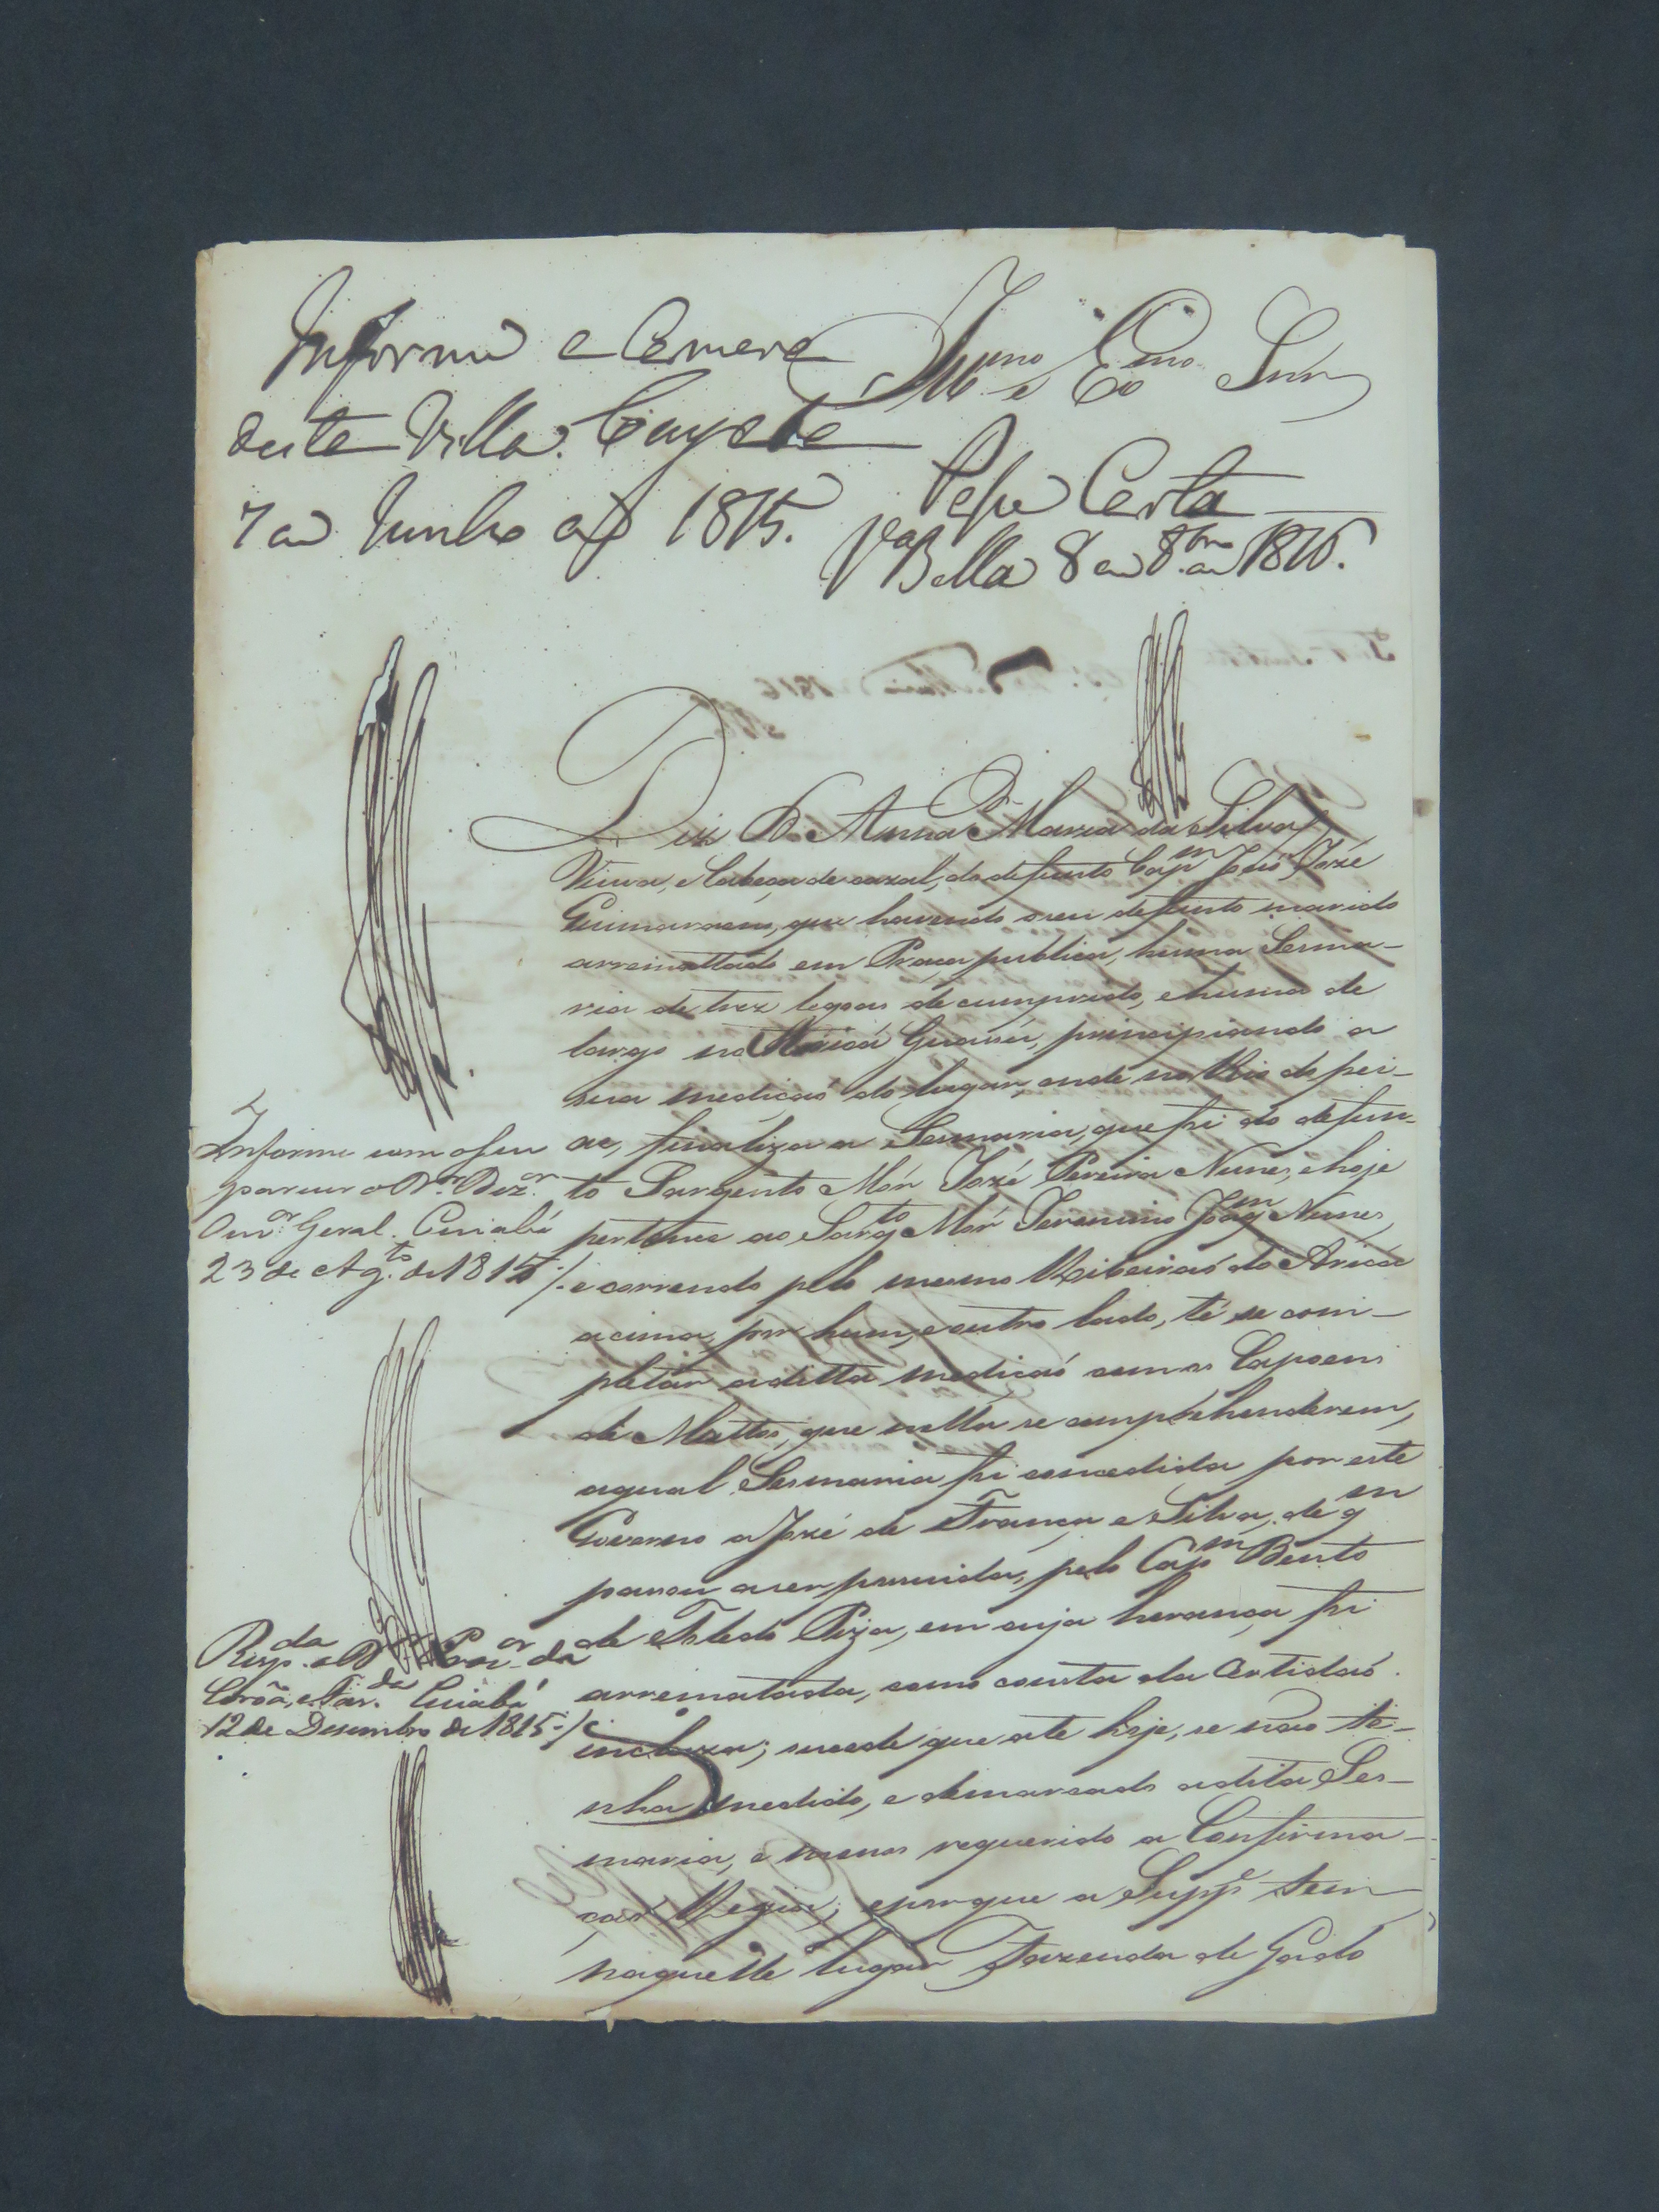 Informe a Camera
desta Villa. Cuyabá
7 de Junho de 1815.
Illmo e Exmo Snr
Passe Carta
Va Bella 8 de 8bro de 1816.
Diz D. Anna Maria da Silva
Viuva, e Cabeça de cazal, do defunto Capm João Jozé
Guimaraens, que havendo o seu defunto marido
arremattado em Praça publica, huma Sesma-
ria de trez legoas de cumprido, e huma de
largo no Aricá Guassú, principiando a
sua medicaó do lugar, onde no Rio de pei-
xe, finaliza a Sesmaria, que foi do defun-
to Sargento Mór Jozé Pereira Nunes, e hoje
pertence ao Sargto Mór Jeronimo Joaqm Nunes,
e correndo pelo mesmo Ribeiraó do Aricá
acima, por hum, e outro lado, té se com-
pletár a ditta medicaó com os Capoens
de Mattos, que nella se comprehenderem,
a qual Sesmaria foi concedida por este
Governo a Jozé de França e Silva, de qm
passou a ser possuida, pelo Capm Bento
de Toledo Piza, em cuja herança foi
arrematada, como consta da Certidaó
incluza; sucede que até hoje, se não te-
nha medido, e demarcado a dita Ses-
maria, e menos requerido a Confirma-
çaõ Regia; e porque a Suppe tem
naquelle lugar Fazenda de Gado
Informe com o seu
parecer o Dr. Dezor
Ouvor Geral. Cuiabá
23 de Agto de 1815/.
Respda o Dr Procor da
Corôa, e Fazda Cuiabá
12 de Desembro de 1815./.